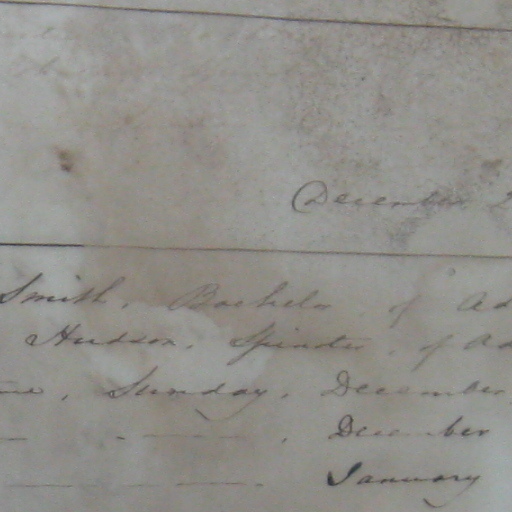 December 2
Smith, Bachelor of Ad
Hudson, Spinster, of Ad
me, Sunday, December
- - -, December
- - -. January